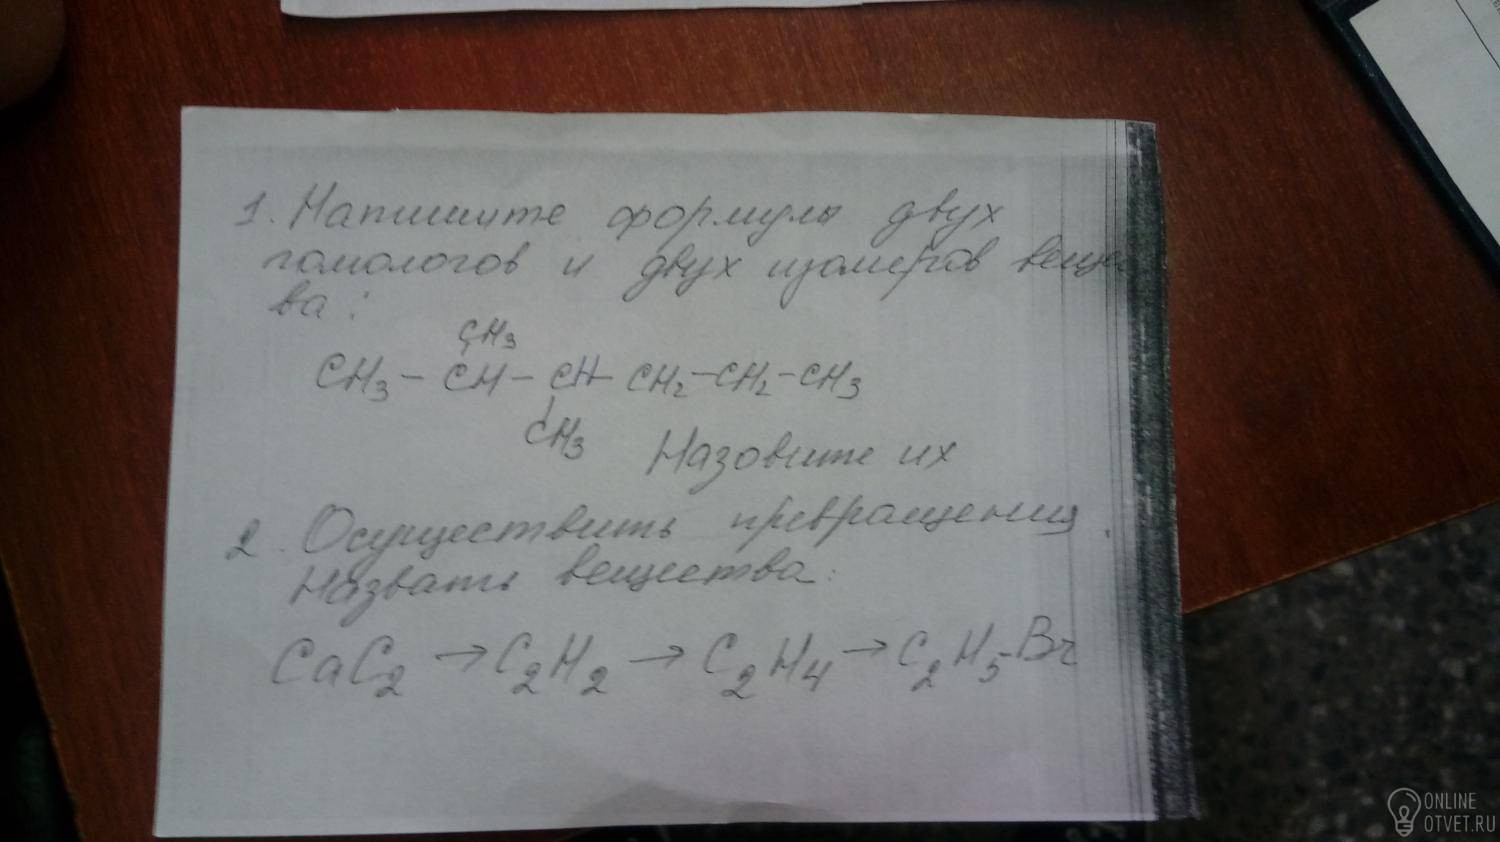 1. Напишите формулы двух
гомологов и двух изомеров вещес
ва:
CH3
CH3 – CH – CH – CH2 – CH2 – CH3
CH3
Назовите их
2. Осуществить превращения.
Назвать вещества:
CaC2 → C2H2 → C2H4 → C2H5-Br
ONLINE
OTVET.RU